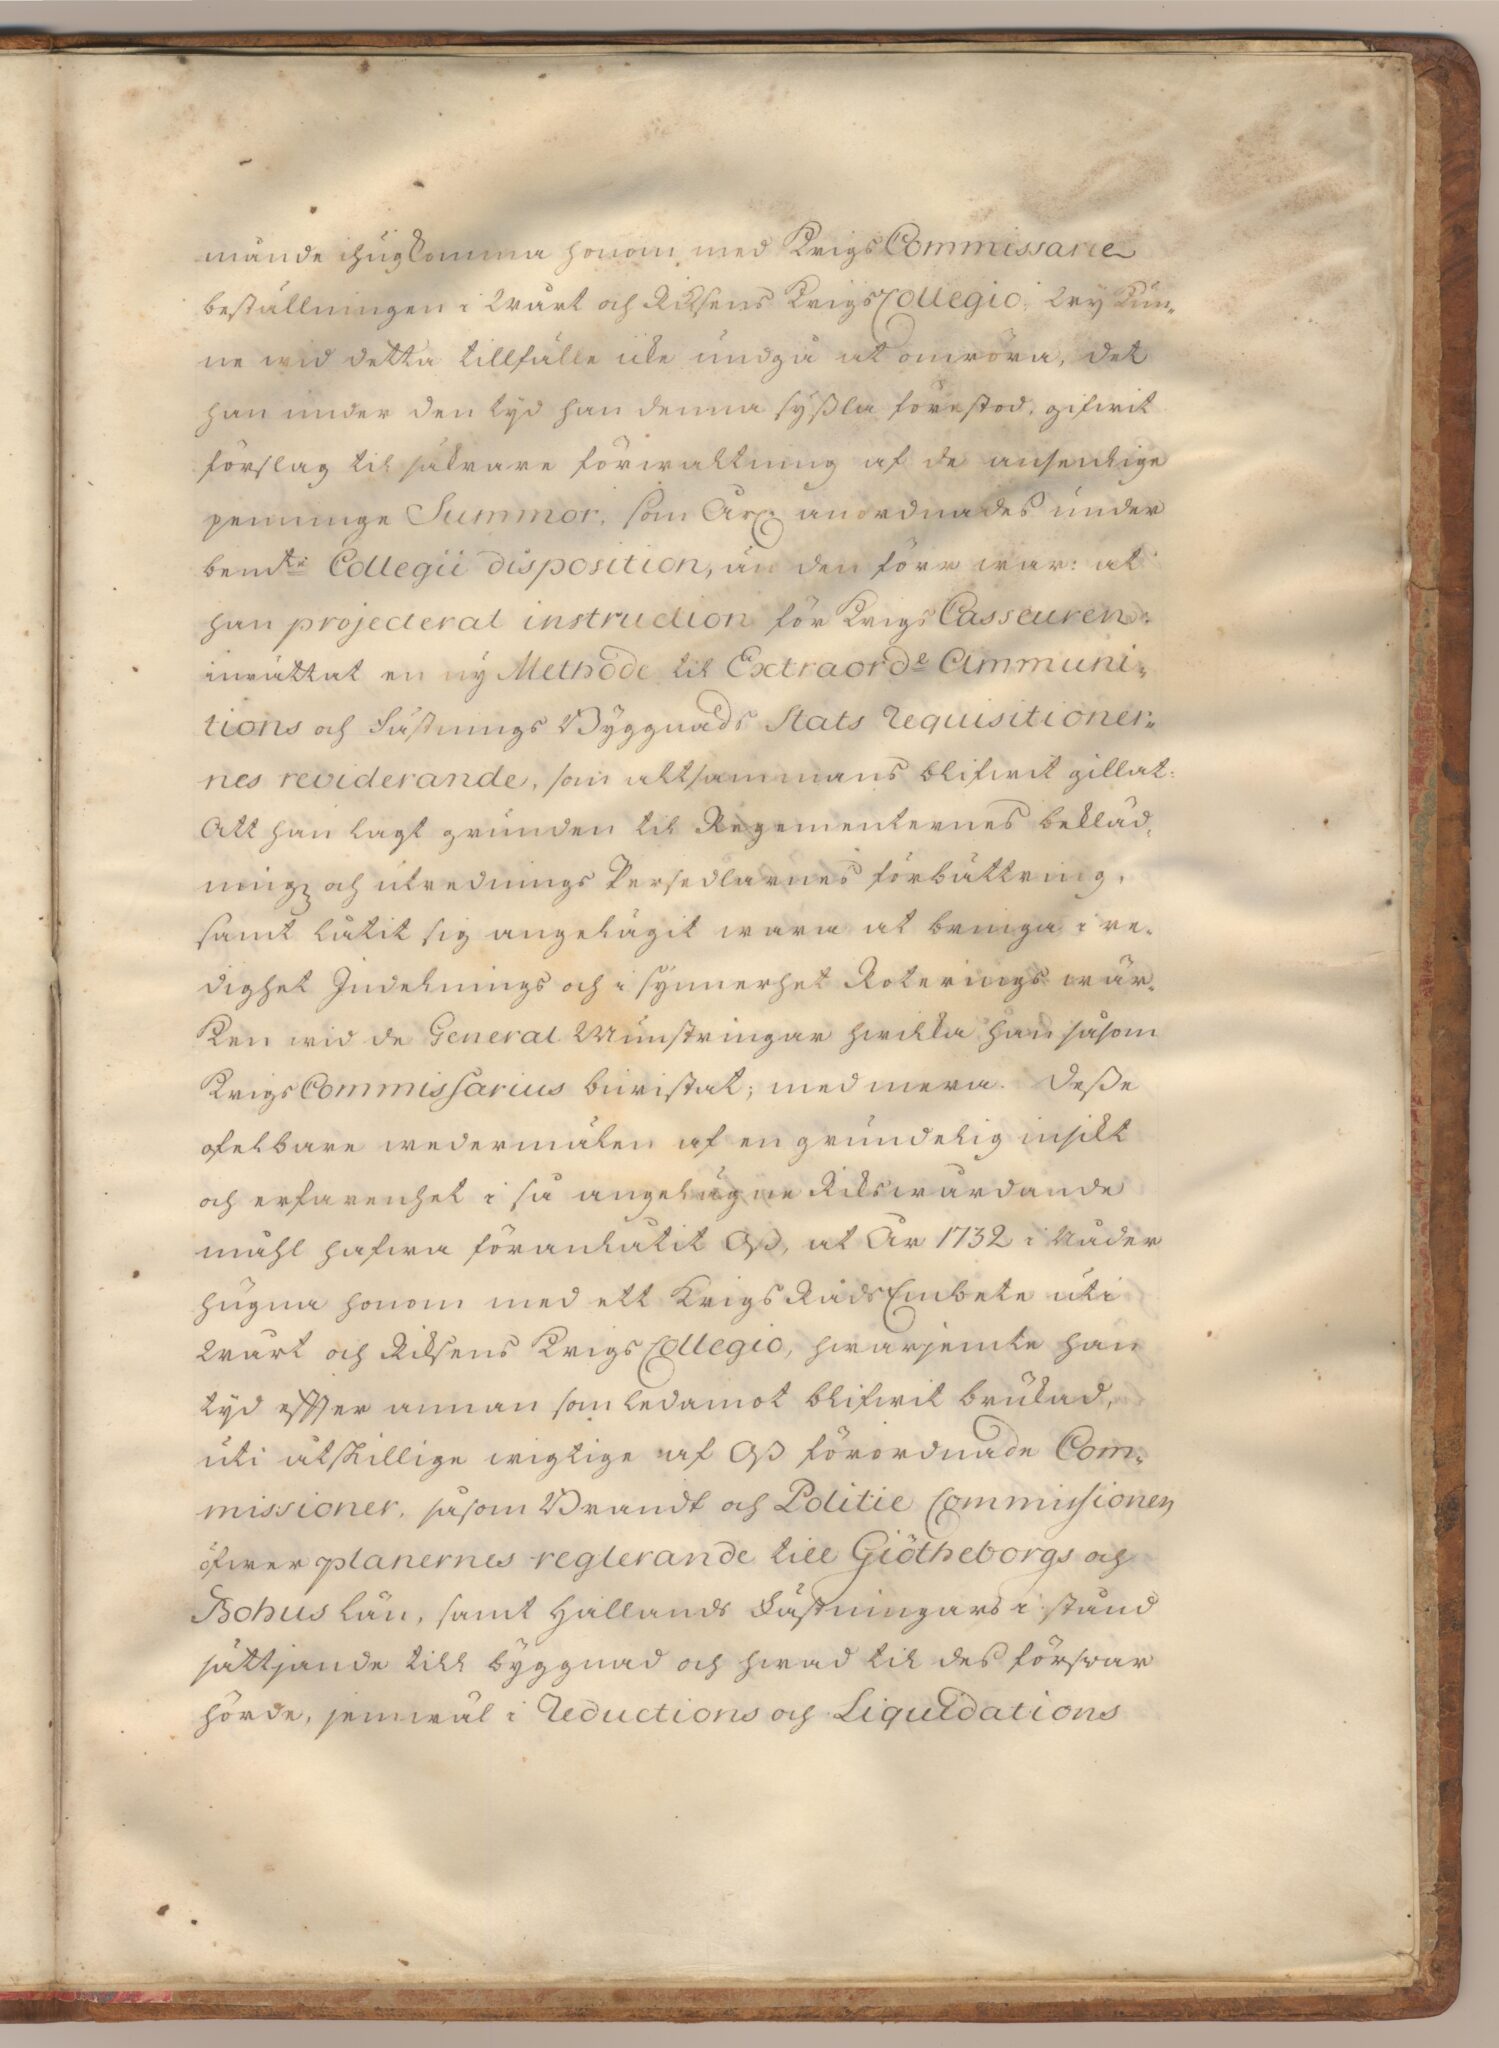 munde ihugkomma honom med Krigs Commissarie
beställningen i Wårt och Riksens Krigs Collegio; Wij kun-
ne wid detta tillfälle icke undgå at omröra, det
han under den tijd han denna syßla förestod, gifwit
förslag til säkrare förwaltning af de ansenlige
penninge Summor, som Årl. anordnades under
bemte Collegii disposition, än den förr war: at
han projecterat instruction för Krigs Casseuren:
inrättat en ny Methode til Extraorde Ammuni-
tions och Fästnings Byggnads Stats Requisitioner-
nes reviderande, som altsammans blifwit gillat:
Att han lagt grunden til Regementernes bekläd-
nings och utrednings Persedlarnes förbättring,
samt låtit sig angelägit wara at bringa i re-
dighet Indelnings och i synnerhet Roterings wär-
ken wid de General Munstringar hwilka han såsom
Krigs Commissarius biwistat; med mera. Deße
ofelbare wedermälen af en grundelig insikt
och erfarenhet i så angelägne Rikswårdande
måhl hafwa föranlåtit Oß, at År 1732 i Nåder
hugna honom med ett Krigs Råds Embete uti
Wårt och Riksens Krigs Collegio, hwarjemte han
tijd effter annan som ledamot blifwit brukad,
uti åtskillige wigtige af Oß förordnade Com-
missioner, såsom Brandt och Politie Commissionen
öfwer planernes reglerande till Giötheborgs och
Bohus Län, samt Hallands Fästningars i stånd
sättjande till byggnad och hwad til des försvar
hörde, jemwäl i Reductions och Liquidations